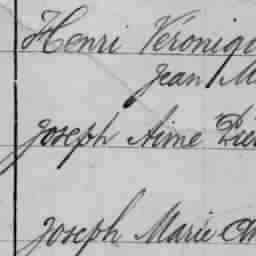 Henri Véroniqu
Jean M
Joseph Aimé Pier
Joseph Marie Ch